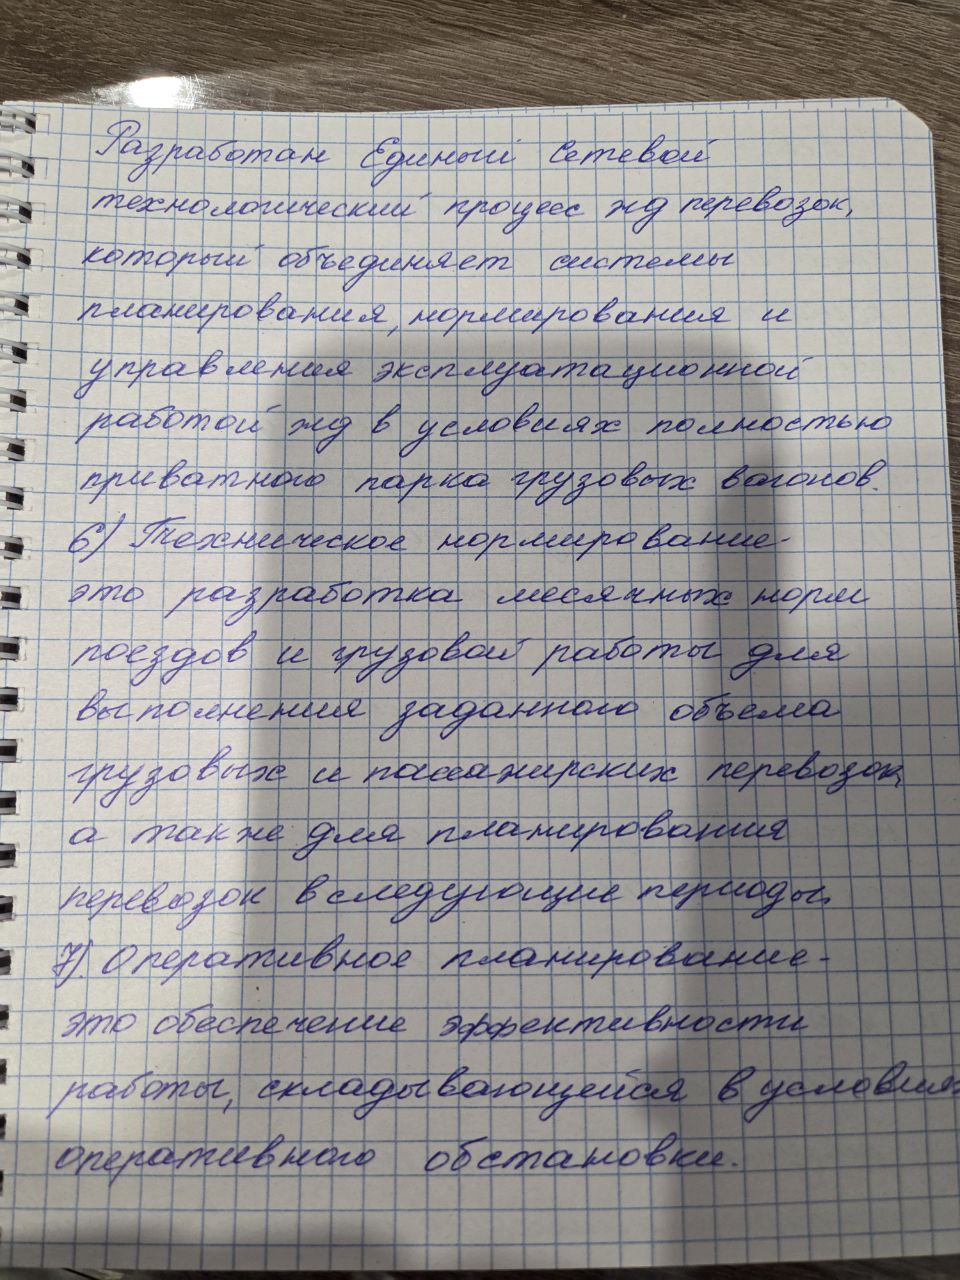 Разработан Единый Сетевой
технологический процесс жд перевозок,
который объединяет системы
планирования, нормирования и
управления эксплуатационной
работой жд в условиях полностью
приватного парка грузовых вагонов.
6) Техническое нормирование-
это разработка месячных норм
поездов и грузовой работы для
выполнения заданного объема
грузовых и пассажирских перевозок,
а также для планирования
перевозок в следующие периоды.
7) Оперативное планирование-
это обеспечение эффективности
работы, складывающейся в условиях
оперативного обстановки.